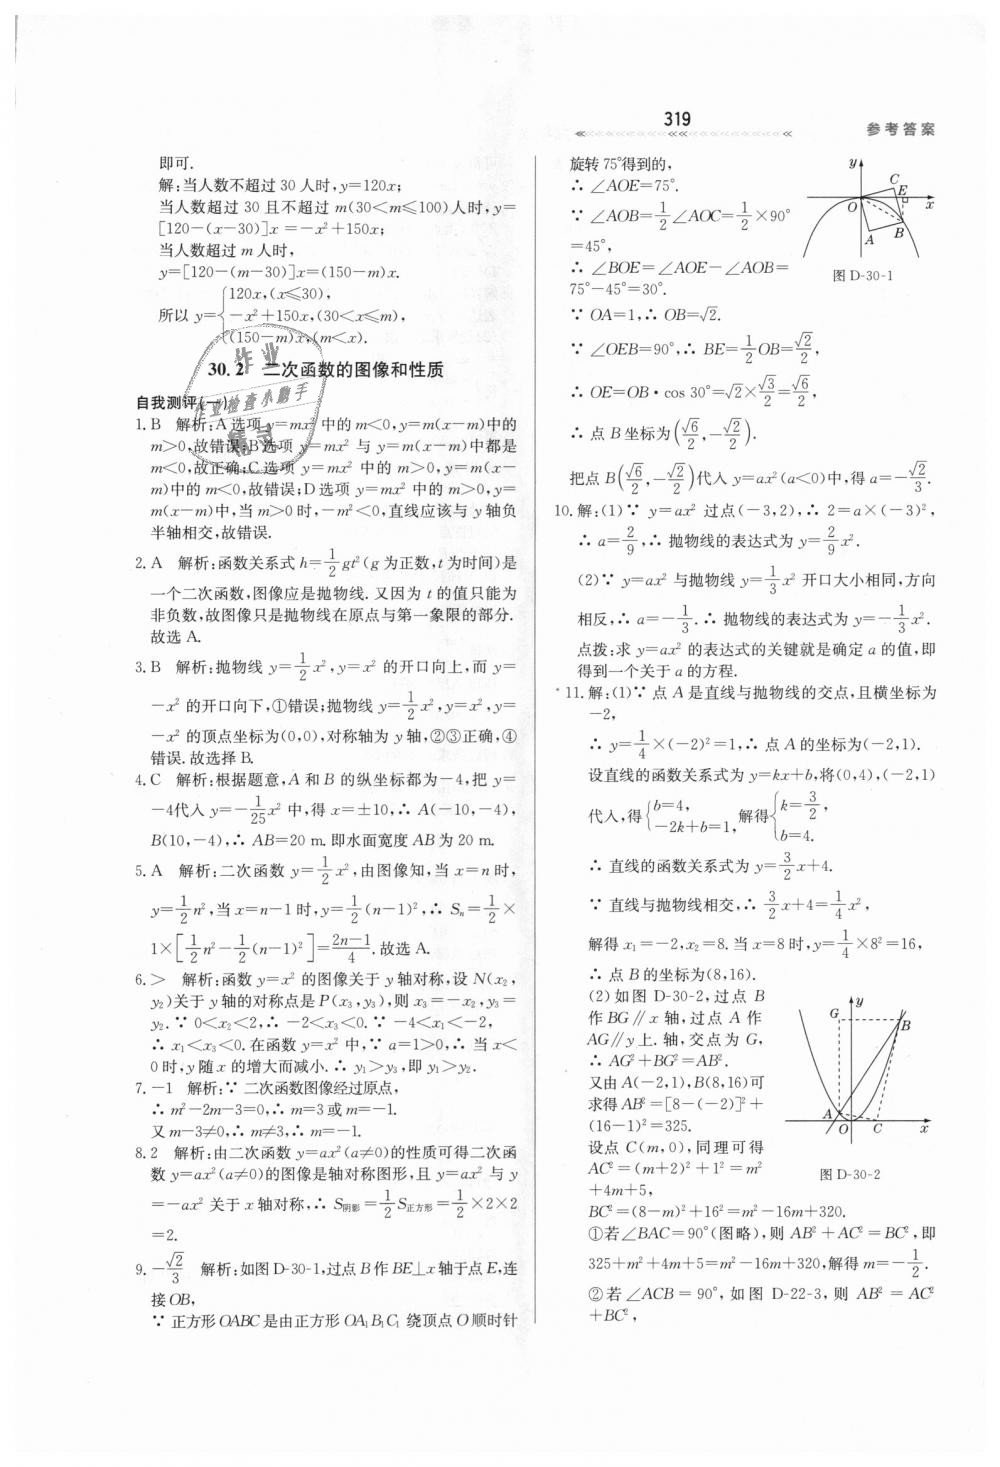 319
参考答案
即可.
解:当人数不超过 30 人时,y=120x;
当人数超过 30 且不超过 m(30<m≤100)人时,y=
[120-(x-30)]x=-x²+150x;
当人数超过 m 人时,
y=[120-(m-30)]x=(150-m)x.
所以 y={120x,(x≤30),
-x²+150x,(30<x≤m),
(150-m)x,(m<x).
30.2 二次函数的图像和性质
自我测评(一)
1.B 解析:A 选项 y=mx² 中的 m<0,y=m(x-m)中的
m>0,故错误;B 选项 y=mx² 与 y=m(x-m)中都是
m<0,故正确;C 选项 y=mx² 中的 m>0,y=m(x-
m)中的 m<0,故错误;D 选项 y=mx² 中的 m>0,y=
m(x-m)中,当 m>0 时,-m²<0,直线应该与 y 轴负
半轴相交,故错误.
2.A 解析:函数关系式 h=1/2 gt²(g 为正数,t 为时间)是
一个二次函数,图像应是抛物线. 又因为 t 的值只能为
非负数,故图像只是抛物线在原点与第一象限的部分.
故选 A.
3.B 解析:抛物线 y=1/2 x²,y=x² 的开口向上,而 y=
-x² 的开口向下,①错误;抛物线 y=1/2 x²,y=x²,y=
-x² 的顶点坐标为(0,0),对称轴为 y 轴,②③正确,④
错误. 故选择 B.
4.C 解析:根据题意,A 和 B 的纵坐标都为-4,把 y=
-4代入 y=-1/25 x² 中,得 x=±10,∴ A(-10,-4),
B(10,-4),∴ AB=20 m. 即水面宽度 AB 为 20 m.
5.A 解析:二次函数 y=1/2 x²,由图像知,当 x=n 时,
y=1/2 n²,当 x=n-1 时,y=1/2 (n-1)²,∴ Sₙ=1/2 ×
1×[1/2 n²-1/2 (n-1)²]=(2n-1)/4. 故选 A.
6.> 解析:函数 y=x² 的图像关于 y 轴对称,设 N(x₂,
y₂)关于 y 轴的对称点是 P(x₃,y₃),则 x₃=-x₂,y₃=
y₂. ∵ 0<x₂<2,∴ -2<x₃<0. ∵ -4<x₁<-2,
∴ x₁<x₃<0. 在函数 y=x² 中,∵ a=1>0,∴ 当 x<
0 时,y 随 x 的增大而减小. ∴ y₁>y₃,即 y₁>y₂.
7.-1 解析:∵ 二次函数图像经过原点,
∴ m²-2m-3=0,∴ m=3 或 m=-1.
又 m-3≠0,∴ m≠3,∴ m=-1.
8.2 解析:由二次函数 y=ax²(a≠0)的性质可得二次函
数 y=ax²(a≠0)的图像是轴对称图形,且 y=ax² 与 y
=-ax² 关于 x 轴对称,∴ S阴影=1/2 S正方形=1/2 ×2×2
=2.
9.-√2/3 解析:如图 D-30-1,过点 B 作 BE⊥x 轴于点 E,连
接 OB,
∵ 正方形 OABC 是由正方形 OA₁B₁C₁ 绕顶点 O 顺时针
旋转 75°得到的,
∴ ∠AOE=75°.
∵ ∠AOB=1/2 ∠AOC=1/2 ×90°
=45°,
∴ ∠BOE=∠AOE-∠AOB=
75°-45°=30°.
∵ OA=1,∴ OB=√2.
∵ ∠OEB=90°,∴ BE=1/2 OB=√2/2,
∴ OE=OB·cos 30°=√2×√3/2=√6/2,
∴ 点 B 坐标为(√6/2,-√2/2).
把点 B(√6/2,-√2/2)代入 y=ax²(a<0)中,得 a=-√2/3.
y
C
E
O
x
A
B
图 D-30-1
10.解:(1)∵ y=ax² 过点(-3,2),∴ 2=a×(-3)²,
∴ a=2/9,∴ 抛物线的表达式为 y=2/9 x².
(2)∵ y=ax² 与抛物线 y=1/3 x² 开口大小相同,方向
相反,∴ a=-1/3. ∴ 抛物线的表达式为 y=-1/3 x².
点拨:求 y=ax² 的表达式的关键就是确定 a 的值,即
得到一个关于 a 的方程.
11.解:(1)∵ 点 A 是直线与抛物线的交点,且横坐标为
-2,
∴ y=1/4 ×(-2)²=1,∴ 点 A 的坐标为(-2,1).
设直线的函数关系式为 y=kx+b,将(0,4),(-2,1)
代入,得{b=4, -2k+b=1, 解得{k=3/2, b=4.
∴ 直线的函数关系式为 y=3/2 x+4.
∵ 直线与抛物线相交,∴ 3/2 x+4=1/4 x²,
解得 x₁=-2,x₂=8. 当 x=8 时,y=1/4 ×8²=16,
∴ 点 B 的坐标为(8,16).
(2)如图 D-30-2,过点 B
作 BG∥x 轴,过点 A 作
AG∥y 上. 轴,交点为 G,
∴ AG²+BG²=AB².
又由 A(-2,1),B(8,16)可
求得 AB²=[8-(-2)]²+
(16-1)²=325.
设点 C(m,0),同理可得
AC²=(m+2)²+1²=m²
+4m+5,
BC²=(8-m)²+16²=m²-16m+320.
y
G
B
A
O
C
x
图 D-30-2
①若∠BAC=90°(图略),则 AB²+AC²=BC²,即
325+m²+4m+5=m²-16m+320,解得 m=-1/2.
②若∠ACB=90°,如图 D-22-3,则 AB²=AC²
+BC²,
作业
作业检查小助手
精灵